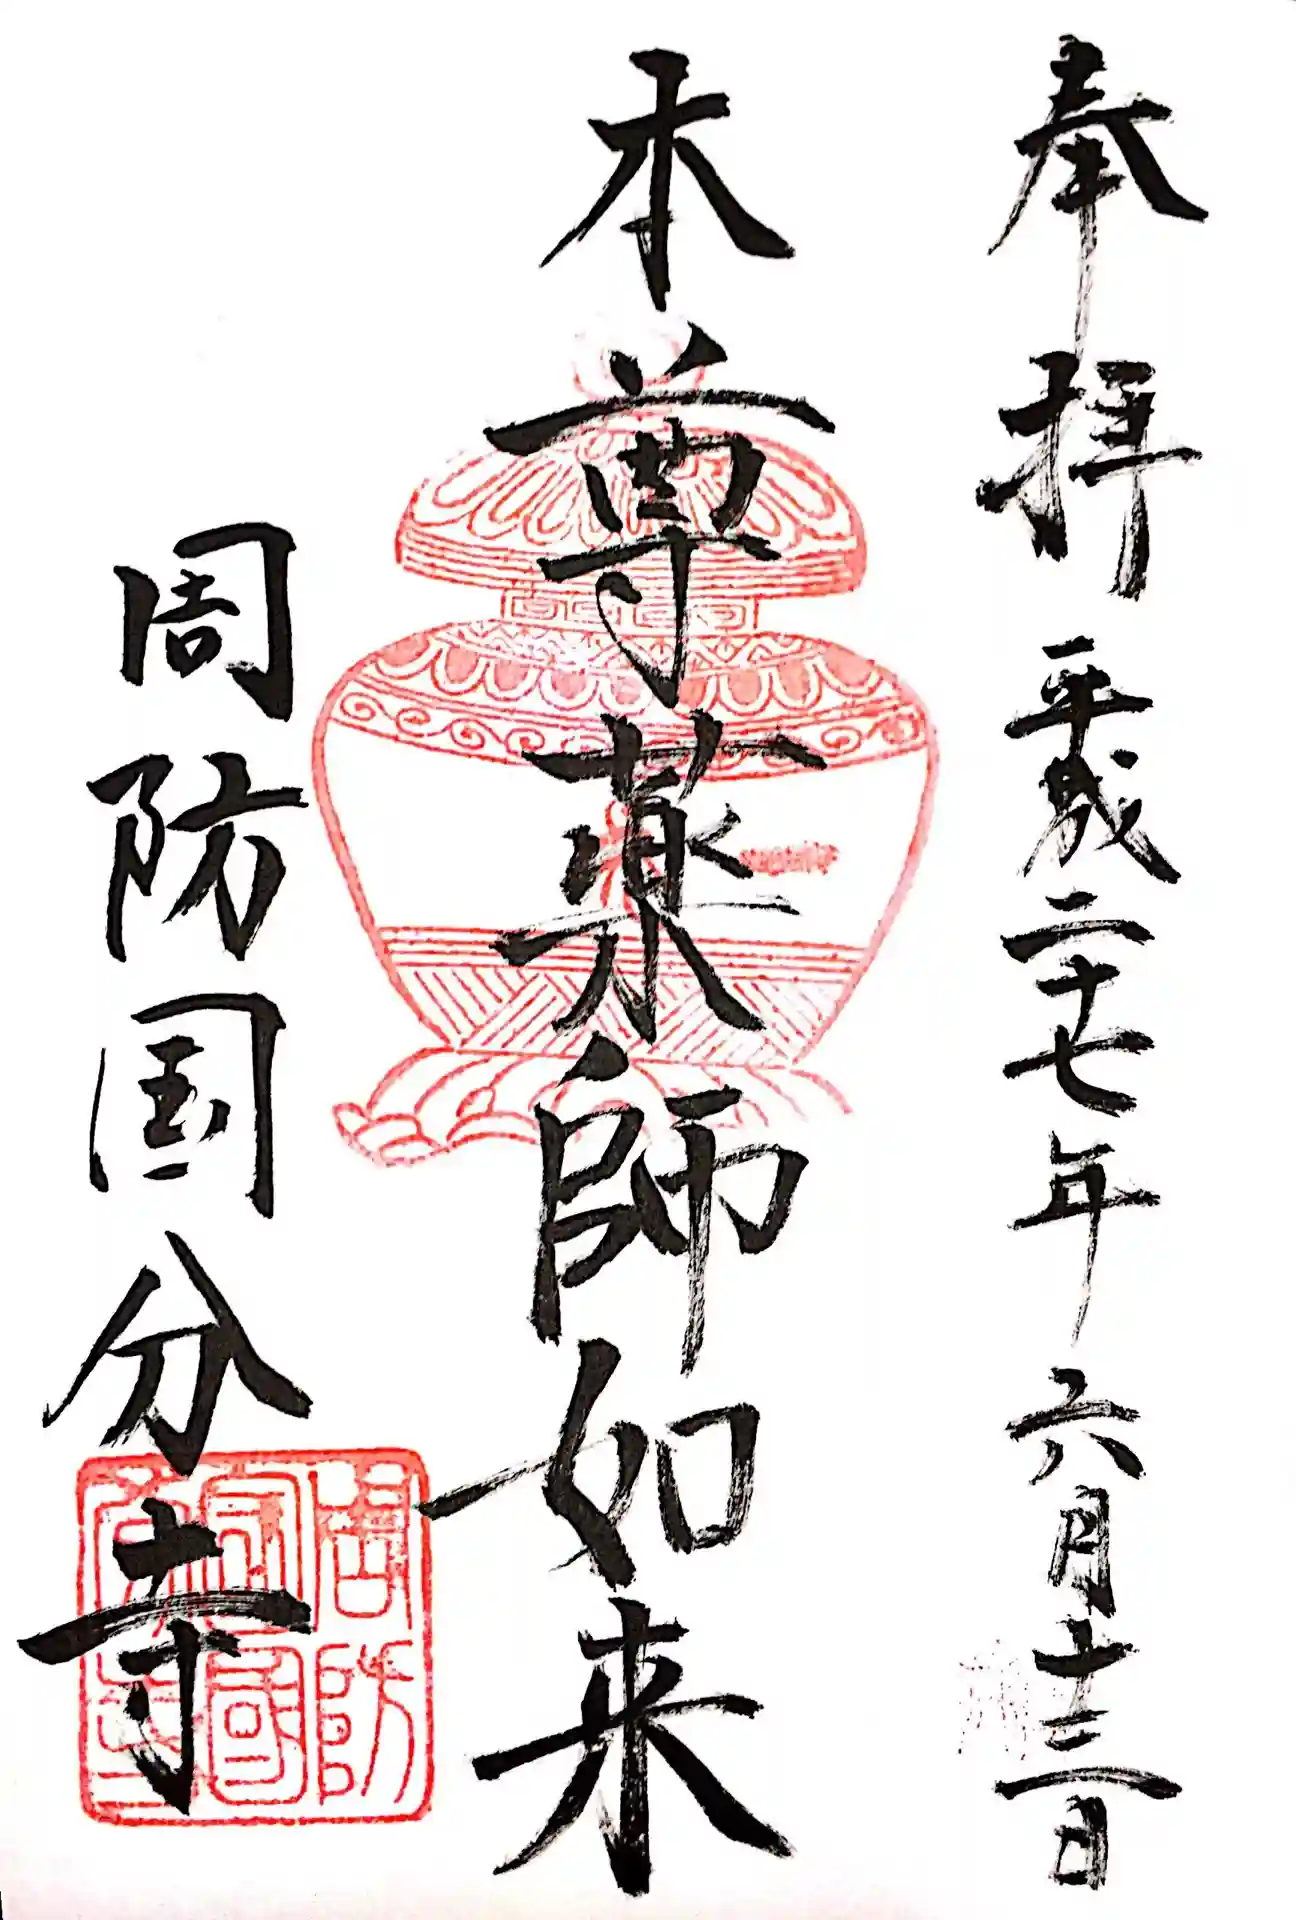 奉拝 平成二十七年 六月十三日
本尊薬師如来
周防国分寺
周防
國